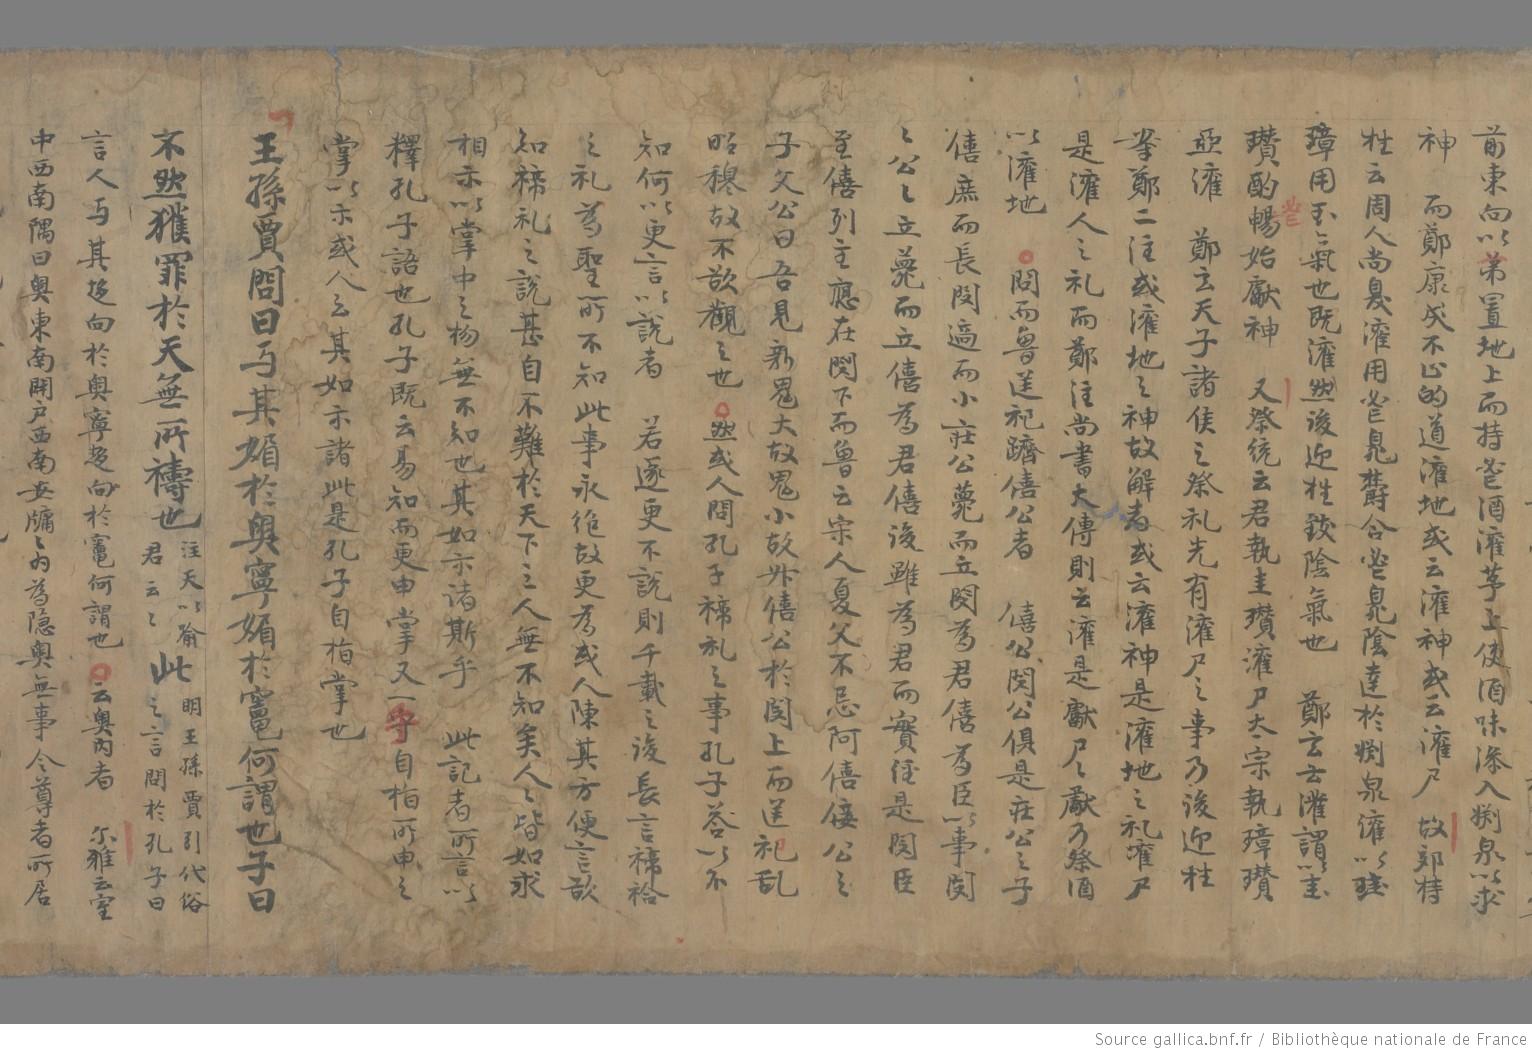 前東向以第置地上而持鬯酒灌茅上使酒味滲入淵泉以求
神　而鄭康成不正的道灌地或云灌神或云灌尸　故郊特
牲云周人尚臭灌用鬯臭欝合鬯臭陰達於淵泉灌以珪
璋用玉氣也既灌然後迎牲致陰氣也　鄭玄云灌謂以圭
瓚酌暢始獻神　又祭統云君執圭瓚灌尸太宗執璋瓚
亞灌　鄭云天子諸侯之祭礼先有灌尸之事乃後迎牲
鄭二注或灌地之神故解者或云灌神是灌地之礼灌尸
是灌人之礼而鄭注尚書大傳則云灌是獻尸〻獻乃祭酒
以灌地　問而魯逆祀躋僖公者　僖公閔公俱是莊公之子
僖庶而長閔適而小莊公薨而立閔為君僖為臣以事閔
〻公〻立薨而立僖為君僖後雖為君而實經是閔臣
至僖列主應在閔下而魯云宗人夏父不忌阿僖倿公之
子文公曰吾見新鬼大故鬼小故升僖公於閔上而逆祀乱
昭穆故不欲觀之也　然或人問孔子褅礼之事孔子答以不
知何以更言以說者　若遂更不說則千載之後長言褅祫
之礼為聖所不知此事永絶故更為或人陳其方便言欲
知褅礼之說甚自不難於天下之人無不知矣人〻皆如求
相示以掌中之物無不知也其如示诸斯乎　此記者所言以
釋孔子語也孔子既云易知而更申掌又一手自指所申之
掌以示或人云其如示諸此是孔子自指掌也
王孫賈問曰与其媚於奥寧媚於竈何謂也子曰
不然獲罪於天無所禱也
注天以喻
君云〻
此
明王孫賈引代俗
之言問於孔子曰
言人与其趍向於奥寧趍向於竈何謂也　云奥内者　尔雅云室
中西南隅曰奥東南開戸西南安牖〻内為隐奥無事令尊者所居
Source gallica.bnf.fr / Bibliothèque nationale de France